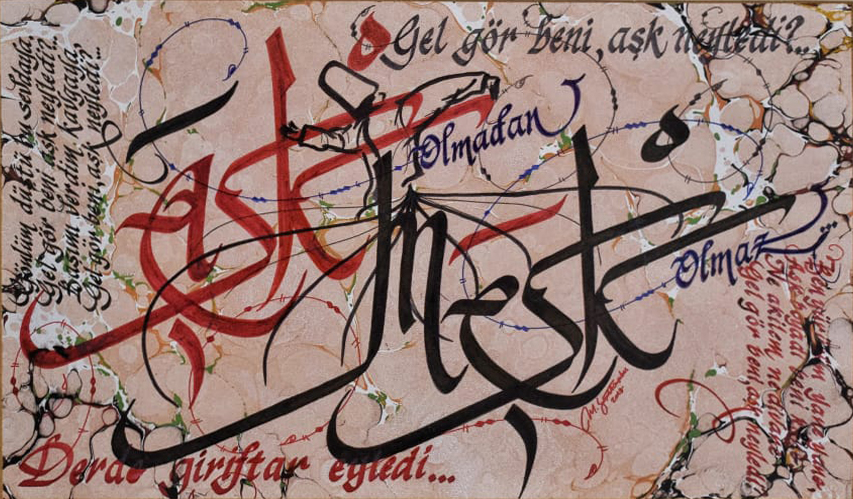 Gel gör beni, aşk neyledi?...
Gönlüm düştü bu sevdaya,
Gel gör beni aşk neyledi?..
Başımı verdim kavgaya,
Gel gör beni aşk neyledi?..
aşk
Olmadan
meşk
Olmaz...
Ben yürürem yane yane,
Ne akilem ne divane
Gel gör beni, aşk neyledi
Derde giriftar eyledi...